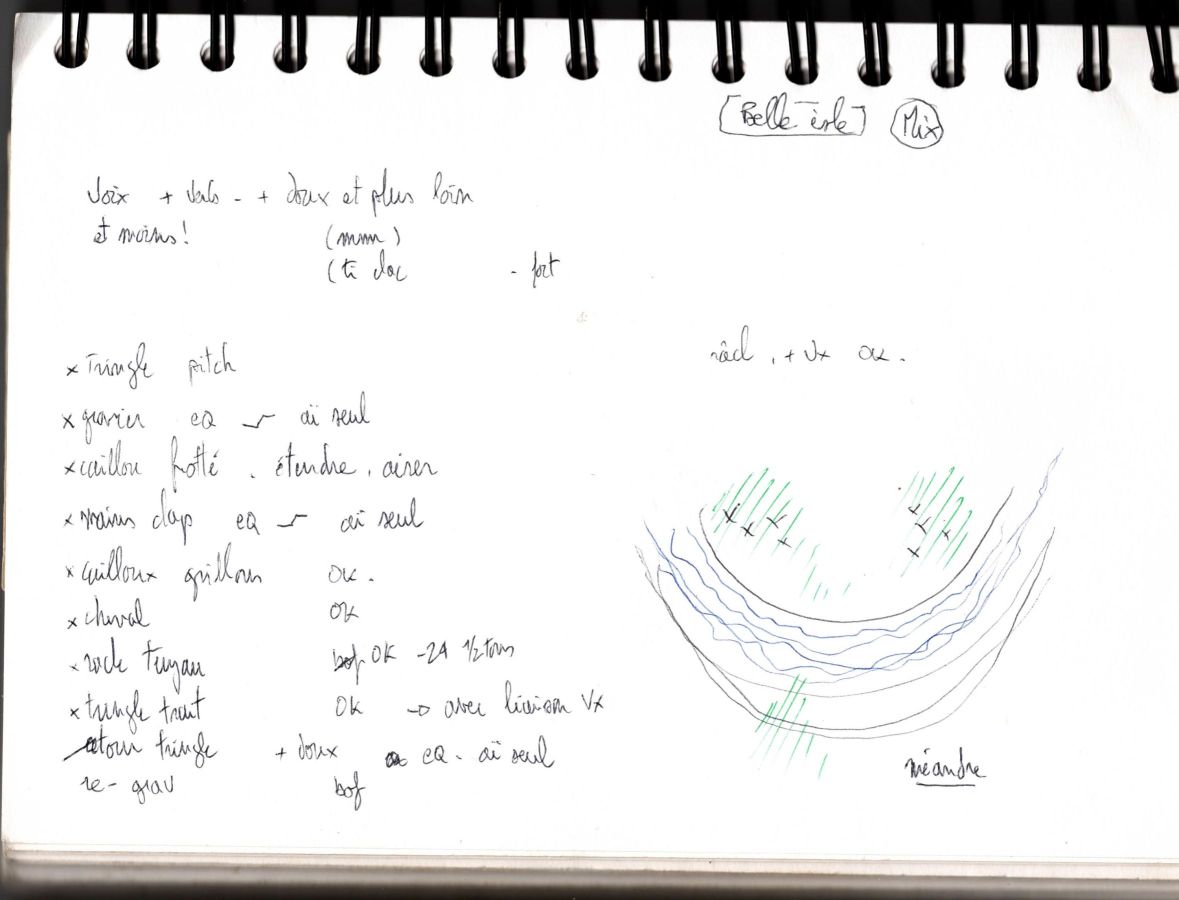 [Belle-isle] Mix
Voix + - + doux et plus loin
et moins!
(mmm)
(ti clac - fort
râcl. + Vx OK.
x Tringle pitch
x gravier eq aï seul
x caillou frotté . étendre, aérer
x mains clap eq aï seul
x cailloux grillons OK.
x cheval OK
x rock tuyau OK -24 1/2 tons
x tringle trait OK → avec liaison Vx
tringle + doux eq - aï seul
re-grav bof
méandre